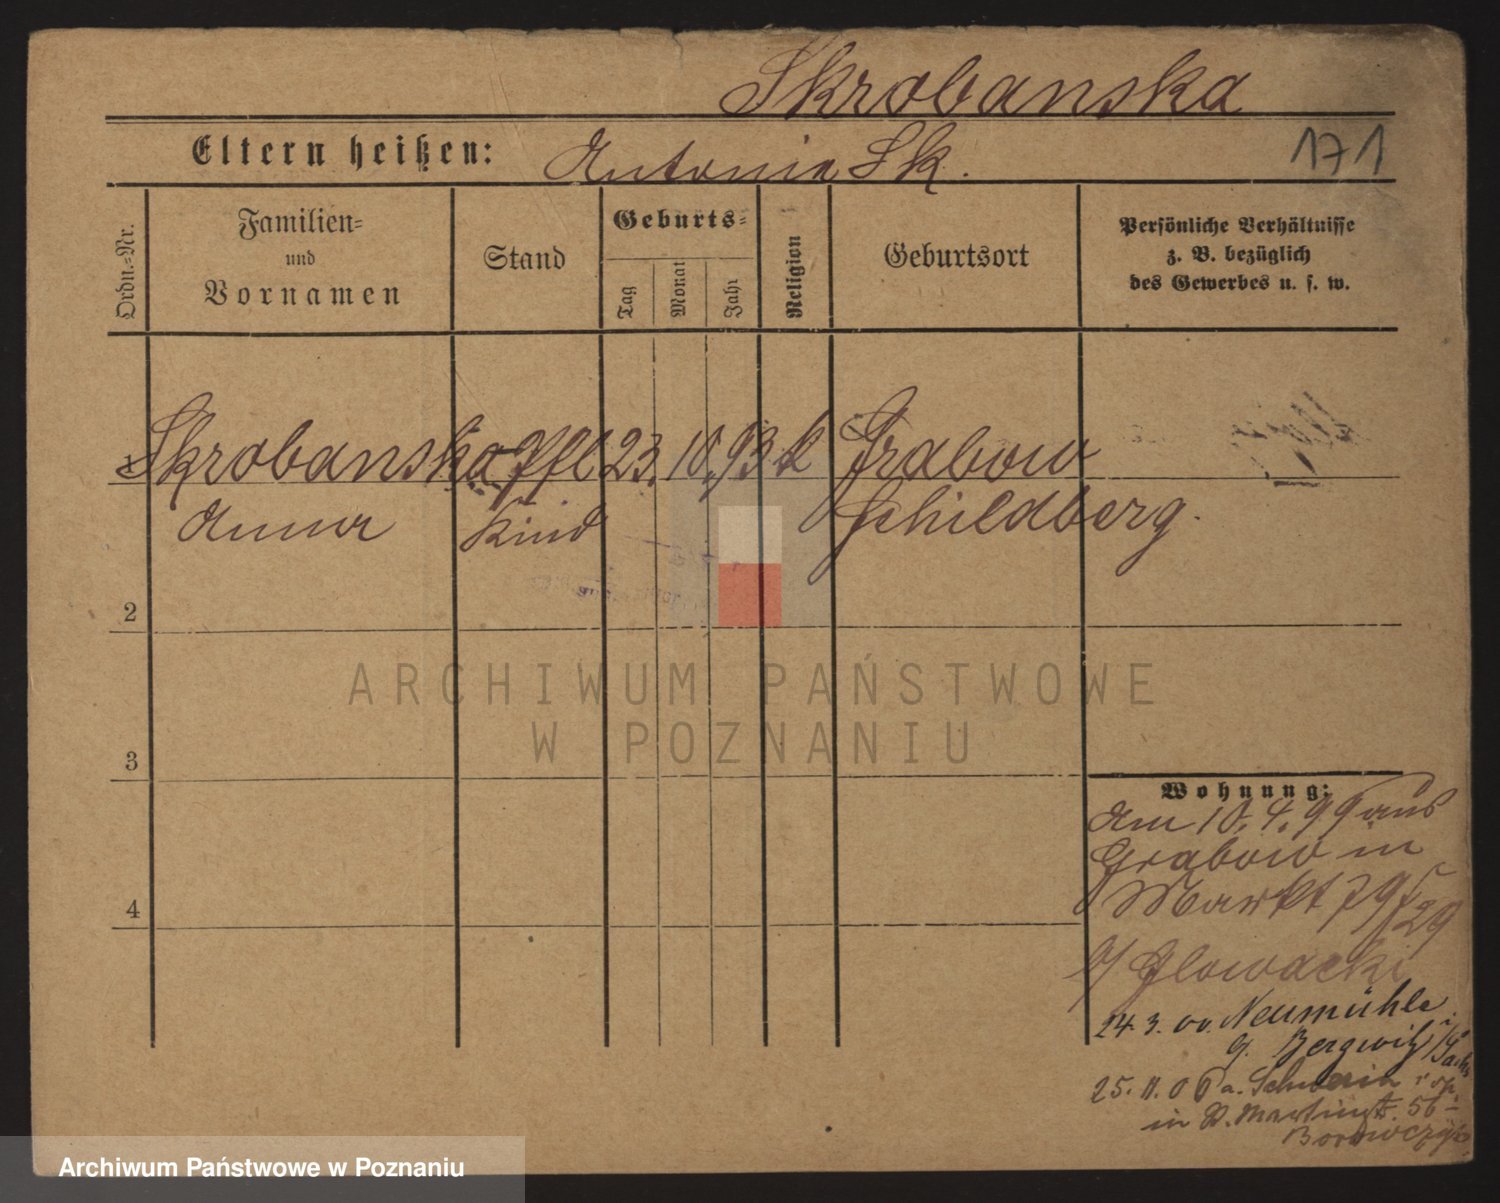 Skrobanska
Eltern heißen: Antonia Sk.
171
Ordn.-Nr.
Familien-
und
Vornamen
Stand
Geburts-
Tag
Monat
Jahr
Religion
Geburtsort
Persönliche Verhältnisse
z. B. bezüglich
des Gewerbes u. s. w.
1 Skrobanska Pfl 23. 10. 93 k Grabow
Anna Kind Schildberg.
2
3
4
Wohnung:
Am 10. 4. 99 aus
Grabow in
Markt 79/29
b/ Glowacki
24. 3. 00. Neumühle
g. Bergwitz i/Sachs
25. 11. 06 a. Schwerin
in St. Martinstr. 56
Borowczyk
ARCHIWUM PAŃSTWOWE
W POZNANIU
Archiwum Państwowe w Poznaniu